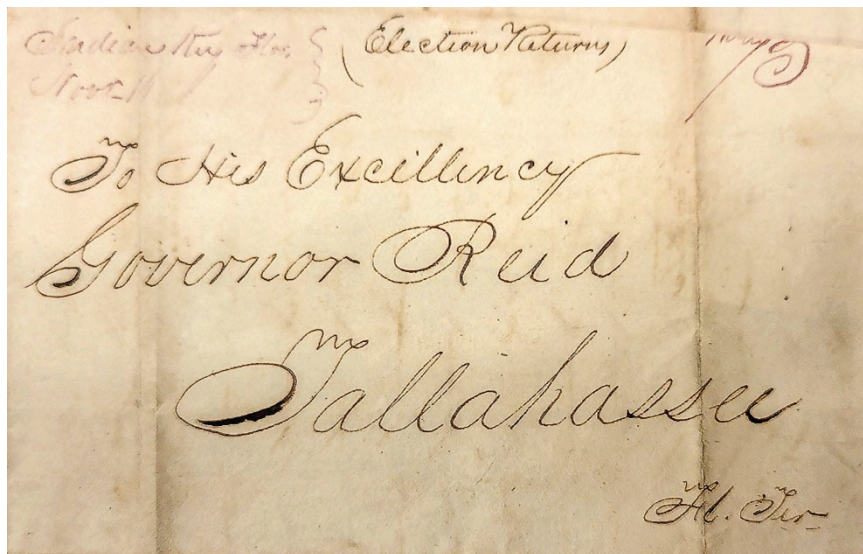 Indian Key Flo. (Election Returns)
Nov. 11
To His Excillency
Governor Reid
Tallahassee
Fl. Ter